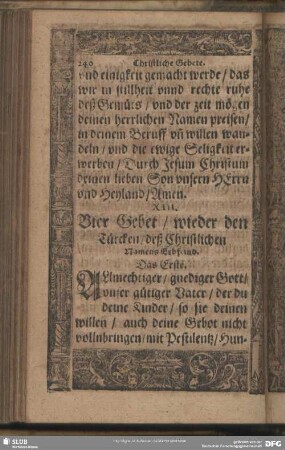 240 Christliche Gebete.
vnd einigkeit gemacht werde / das
wir in stillheit vnnd rechte ruhe
deß Gemüts / vnd der zeit mögen
deinen herrlichen Namen preisen /
in deinem Beruff vñ willen wan-
deln / vnd die ewige Seligkeit er-
werben / Durch Jesum Christum
deinen lieben Son vnsern HErrn
vnd Heyland / Amen.
XIII.
Vier Gebet / wieder den
Türcken / deß Christlichen
Namens Erbfeind.
Das Erste.
ALlmechtiger / gnediger Gott /
vnser gütiger Vater / der du
deine Kinder / so sie deinen
willen / auch deine Gebot nicht
vollnbringen / mit Pestilentz / Hun-
SLUB
DFG